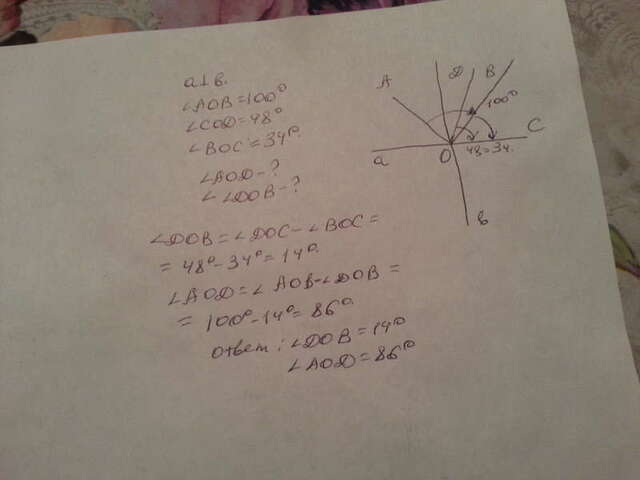 a⊥в.
∠AOB=100°
∠COD=48°
∠BOC=34°.
∠AOD-?
∠ ∠DOB-?
A
D
B
100°
C
a
O
48=34.
в
∠DOB=∠DOC-∠BOC=
=48°-34°=14°.
∠AOD=∠AOB-∠DOB=
=100°-14°=86°.
ответ: ∠DOB=14°
∠AOD=86°